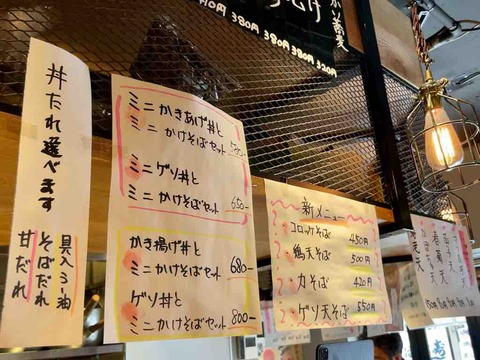 丼たれ選べます
具入ラー油
そばだれ
甘だれ
ミニかきあげ丼と
ミニかけそばセット
ミニゲソ丼と
ミニかけそばセット 650-
かき揚げ丼と
ミニかけそばセット 680-
ゲソ丼と
ミニかけそばセット 800-
新メニュー
コロッケそば 450円
鶏天そば 500円
力そば 420円
ゲソ天そば 550円
380円 380円 380円 320円